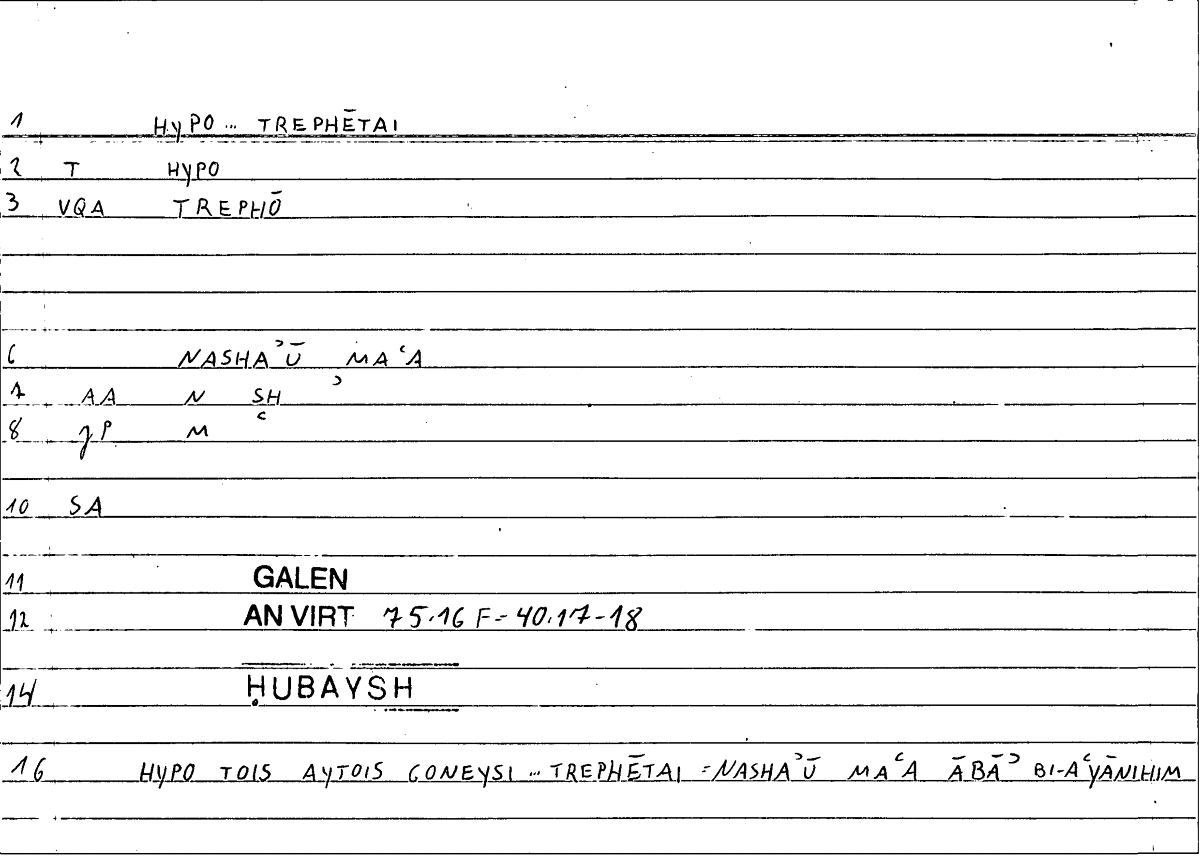 1 HYPO ... TREPHĒTAI
2 T HYPO
3 VQA TREPHŌ
6 NASHAʾŪ MAʿA
7 AA N SH ʾ
8 JP M ʿ
10 SA
11 GALEN
12 AN VIRT 75.16 F = 40.17-18
14 ḤUBAYSH
16 HYPO TOIS AYTOIS GONEYSI ... TREPHĒTAI = NASHAʾŪ MAʿA ĀBĀʾ BI-AʿYĀNIHIM